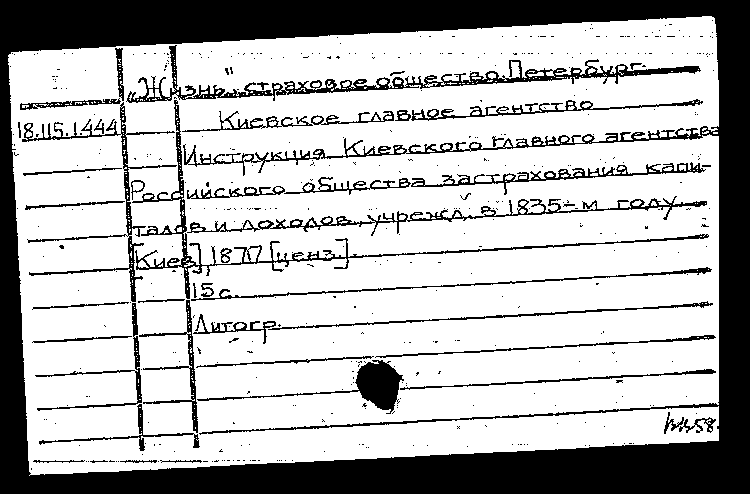 „Жизнь", страховое общество. Петербург.
Киевское главное агентство
18.115.1444
Инструкция Киевского главного агентства
Российского общества застрахования капи-
талов и доходов, учрежд. в 1835-м году.
[Киев], 1877 [ценз.].
15 с.
Литогр.